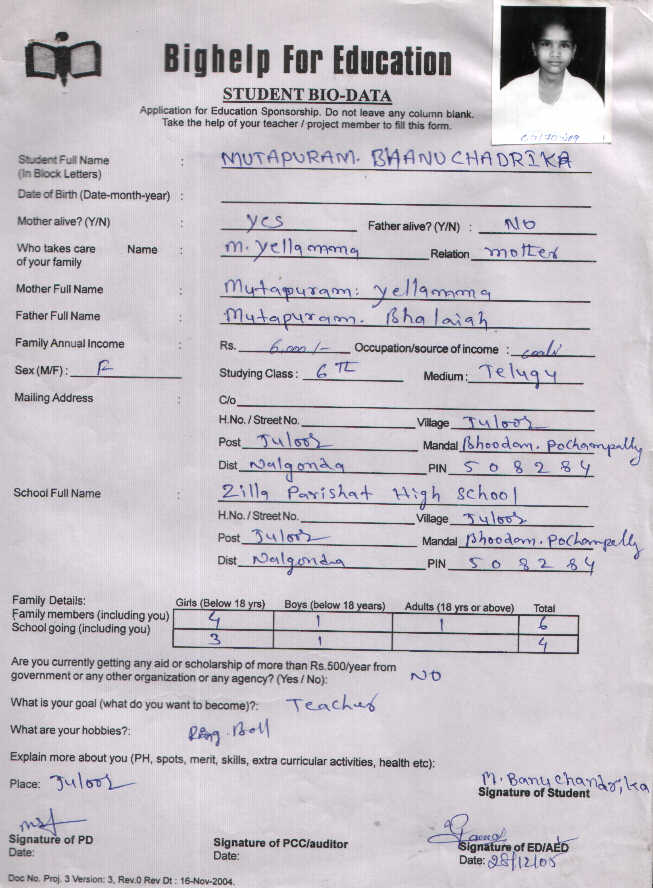 Bighelp For Education
STUDENT BIO-DATA
Application for Education Sponsorship. Do not leave any column blank.
Take the help of your teacher / project member to fill this form.
Student Full Name : MUTAPURAM. BHANU CHADRIKA
(In Block Letters)
Date of Birth (Date-month-year) :
Mother alive? (Y/N) : yes Father alive? (Y/N) : NO
Who takes care Name : M. Yellamma Relation mother
of your family
Mother Full Name : Mutapuram. Yellamma
Father Full Name : Mutapuram. Bhalaiah
Family Annual Income : Rs. 6,000/- Occupation/source of income : cooli
Sex (M/F) : F Studying Class : 6th Medium : Telugu
Mailing Address : C/o
H.No. / Street No. Village Juloor
Post Juloor Mandal Bhoodan. Pochampally
Dist Nalgonda PIN 508284
School Full Name : Zilla Parishat High School
H.No. / Street No. Village Juloor
Post Juloor Mandal Bhoodan. Pochampally
Dist Nalgonda PIN 508284
Family Details: Girls (Below 18 yrs) Boys (below 18 years) Adults (18 yrs or above) Total
Family members (including you) 4 1 1 6
School going (including you) 3 1 4
Are you currently getting any aid or scholarship of more than Rs.500/year from
government or any other organization or any agency? (Yes / No): NO
What is your goal (what do you want to become)?: Teacher
What are your hobbies?: Ring Ball
Explain more about you (PH, spots, merit, skills, extra curricular activities, health etc):
Place: Juloor M. Banu chandrika
Signature of Student
Signature of PD Signature of PCC/auditor Signature of ED/AED
Date: Date: Date: 28/12/05
Doc No. Proj. 3 Version: 3, Rev.0 Rev Dt : 16-Nov-2004.